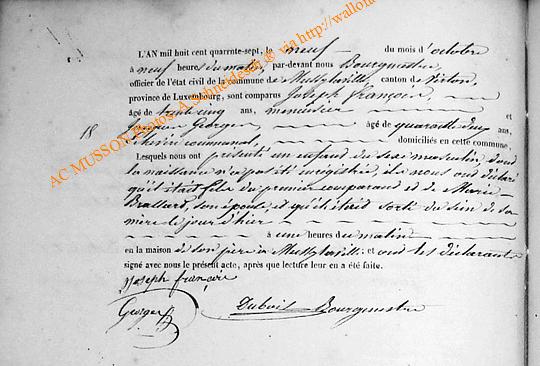 L'AN mil huit cent quarante-sept, le neuf du mois d'octobre
à neuf heures du matin, par-devant nous Bourgmestre
officier de l'état civil de la commune de Mussy-la-ville, canton de Virton,
province de Luxembourg, sont comparus Joseph François,
âgé de trente cinq ans, menuisier et
18 Georges âgé de quarante deux ans,
communal, domiciliés en cette commune,
Lesquels nous ont présenté un enfant de sexe masculin dont
la naissance n'a pas été enregistrée, ils nous ont déclaré
qu'il était fils du premier comparant et de Marie
son épouse et qu'il était sorti du sein de sa
mère le jour d'hier
à une heures du matin
en la maison de son père à Mussy-la-ville; et ont les déclarants
signé avec nous le présent acte, après que lecture leur en a été faite.
Joseph françois
Georges
Dubois Bourgmestre
AC MUSSON Photos A. Schneidesch ® via http://wallonia